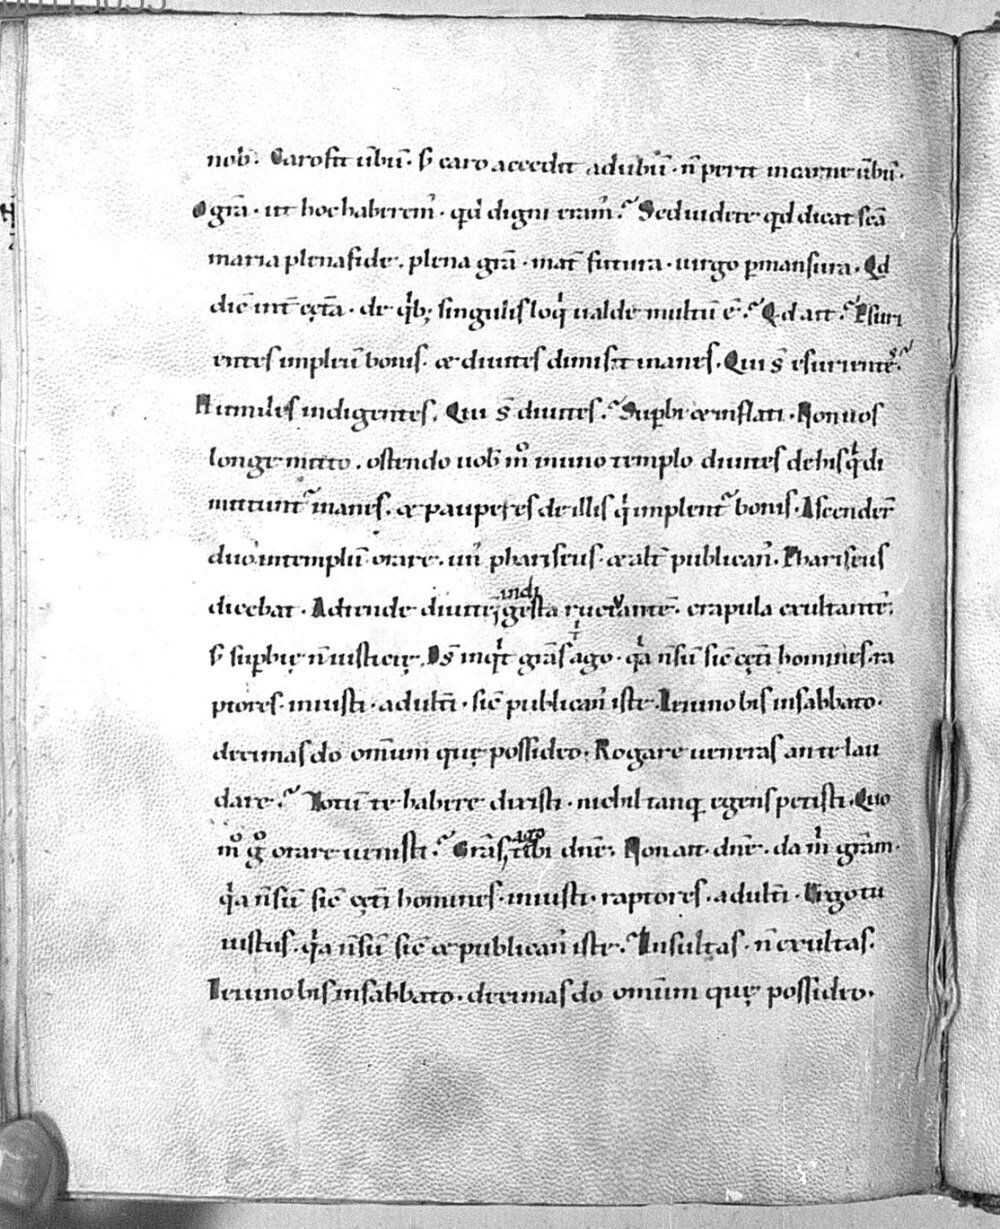 nob̄. Caro fit ūbū. s̄ caro accedit ad ubū. n̄ perit in carne ūbū.
O grā. ut hoc haberem᾽. qđ digni eram᾽. Sed uidete qđ dicat scā
maria plena fide. plena grā. mat̄ futura. uirgo p̄mansura. Qđ
dic̄ int̄ cęt̄a. de qⁱb; singulis loqⁱ ualde multū ē. Qđ ait. Esuri
entes impleuᷓ bonis. & diuites dimisit inanes. Qui s̄ esurientē.
Humiles indigentes. Qui s̄ diuites. Supbi & inflati. Non uos
longe mitto. ostendo uob̄ m̊ in uno templo diuites de his qⁱ di
mittunt᾽ inanes. & pauperes de illis qⁱ implent᾽ bonis. Ascender̄
duo in templū orare. un᾽ phariseus & alt̄ publican᾽. Phariseus
dicebat. Adtende diuitē, indigesta ructantē. crapula exultantē.
s̄ supbię n̄ iusticię. Ds̄ inqⁱt grās ago. qⁱa n̄ sū sic̄ cęt̄i homines. ra
ptores. iniusti. adult̄i. sic̄ publican᾽ iste. Ieiuno bis in sabbato.
decimas do omīum quę possideo. Rogare ueneras an te lau
dare. Totū te habere dixisti. nichil tanq̄ egens petisti. Quo
m̊ g̊ orare uenisti. Grās ago tibi dnē. Non ait. dnē. da mⁱ grām.
qⁱa n̄ sū sic̄ cęt̄i homines. iniusti. raptores. adult̄i. Ergo tu
iustus. qⁱa n̄ sū sic̄ & publican᾽ iste. Insultas. n̄ exultas.
Ieiuno bis in sabbato. decimas do omīum quę possideo.